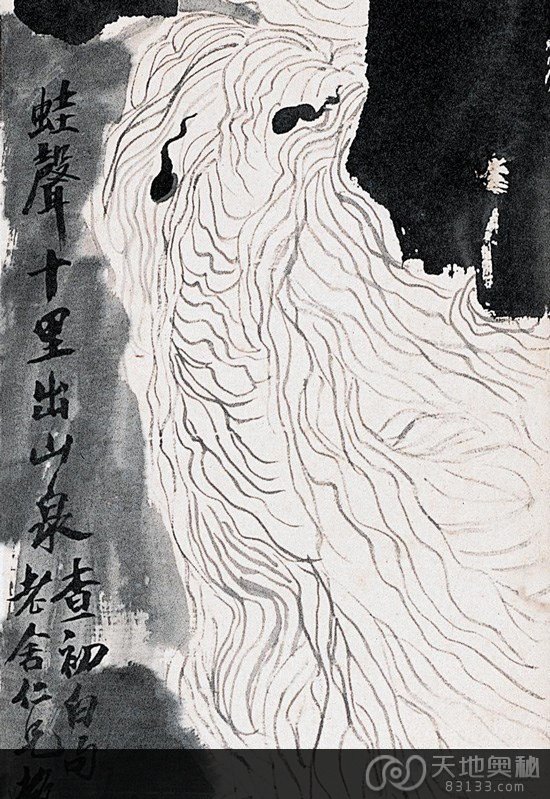 蛙聲十里出山泉
查初白句
老舍仁兄
天地奥秘
83133.com